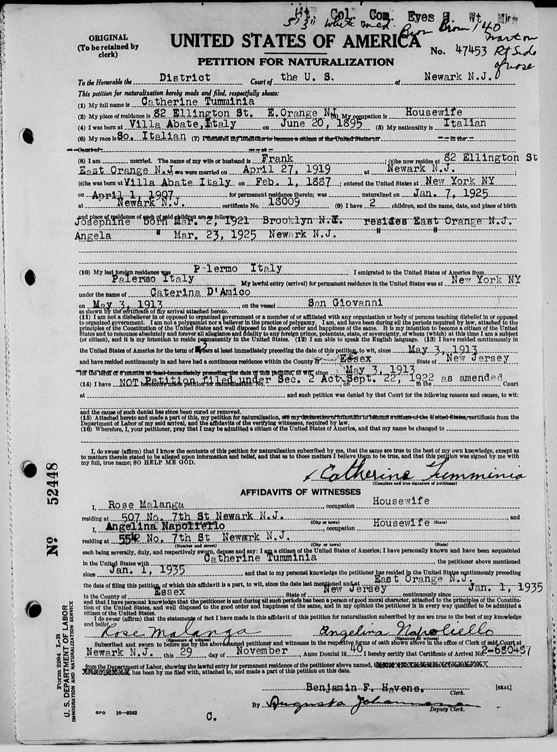 Ht. Col. Com. Eyes H. Wt.
5'3" white med. Brown Brown 140
ORIGINAL
(To be retained by
clerk)
UNITED STATES OF AMERICA
PETITION FOR NATURALIZATION
No. 47453
Rt Side
of nose
To the Honorable the District Court of the U. S. at Newark N.J.
This petition for naturalization hereby made and filed, respectfully shows:
(1) My full name is Catherine Tumminia
(2) My place of residence is 82 Ellington St. E.Orange NJ (3) My occupation is Housewife
(4) I was born at Villa Abate,Italy on June 20, 1895 (5) My nationality is Italian
(6) My race is So. Italian (7)
(8) I am married. The name of my wife or husband is Frank (s)he now resides at 82 Ellington St
East Orange N.J. we were married on April 27, 1919 at Newark N.J.
(s)he was born at Villa Abate Italy. on Feb. 1, 1887; entered the United States at New York NY
on April 1, 1907 for permanent residence therein; was naturalized on Jan. 7, 1925
at Newark N.J. certificate No. 18009 (9) I have 2 children, and the name, date, and place of birth
and place of residence of each of said children are as follows:
Josephine born Mar. 2, 1921 Brooklyn N.Y. resides East Orange N.J.
Angela " Mar. 23, 1925 Newark N.J. " "
(10) My last foreign residence was Palermo Italy I emigrated to the United States of America from
Palermo Italy My lawful entry (arrival) for permanent residence in the United States was at New York NY
under the name of Caterina D'Amico
on May 3, 1913 on the vessel San Giovanni
as shown by the certificate of my arrival attached hereto.
(11) I am not a disbeliever in or opposed to organized government or a member of or affiliated with any organization or body of persons teaching disbelief in or opposed
to organized government. I am not a polygamist nor a believer in the practice of polygamy. I am, and have been during all the periods required by law, attached to the
principles of the Constitution of the United States and well disposed to the good order and happiness of the United States. It is my intention to become a citizen of the United
States and to renounce absolutely and forever all allegiance and fidelity to any foreign prince, potentate, state, or sovereignty of whom (which) at this time I am a subject
(or citizen), and it is my intention to reside permanently in the United States. (12) I am able to speak the English language. (13) I have resided continuously in
the United States of America for the term of years at least immediately preceding the date of this petition, to wit, since May 3, 1913
and have resided continuously in and have had a continuous residence within the County of Essex State of New Jersey
May 3, 1913
(14) I have NOT Petition filed under Sec. 2 Act Sept. 22, 1922 as amended Court
at and such petition was denied by that Court for the following reasons and causes, to wit:
and the cause of such denial has since been cured or removed.
(15) Attached hereto and made a part of this, my petition for naturalization, certificate from the
Department of Labor of my said arrival, and the affidavits of the verifying witnesses, required by law.
(16) Wherefore, I, your petitioner, pray that I may be admitted a citizen of the United States of America, and that my name be changed to
I do swear (affirm) that I know the contents of this petition for naturalization subscribed by me, that the same are true to the best of my own knowledge, except as
to matters therein stated to be alleged upon information and belief, and that as to those matters I believe them to be true, and that this petition was signed by me with
my full, true name; SO HELP ME GOD.
Catherine Tumminia
(Complete and true signature of petitioner)
AFFIDAVITS OF WITNESSES
I, Rose Malanga occupation Housewife
residing at 507 No. 7th St Newark N.J. and
(City or town) (State)
I, Angelina Napoliello occupation Housewife
residing at No. 7th St Newark N.J.
(City or town) (State)
each being severally, duly, and respectively sworn, depose and say: I am a citizen of the United States of America; I have personally known and have been acquainted
in the United States with Catherine Tumminia the petitioner above mentioned
since Jan. 1, 1935 and that to my personal knowledge the petitioner has resided in the United States continuously preceding
the date of filing this petition, of which this affidavit is a part, to wit, since the date last mentioned and at East Orange N.J.
in the County of Essex State of New Jersey continuously since Jan. 1, 1935
and that I have personal knowledge that the petitioner is and during all such periods has been a person of good moral character, attached to the principles of the Constitution
of the United States, and well disposed to the good order and happiness of the same, and in my opinion the petitioner is in every way qualified to be admitted a
citizen of the United States.
I do swear (affirm) that the statements of fact I have made in this affidavit of this petition for naturalization subscribed by me are true to the best of my knowledge
and belief.
Rose Malanga Angelina Napoliello
Subscribed and sworn to before me by the above-named petitioner and witnesses in the respective forms of oath shown above in the office of the Clerk of said Court at
Newark N.J. this 29 day of November Anno Domini 19 40 I hereby certify that Certificate of Arrival No. 2-630437
from the Department of Labor, showing the lawful entry for permanent residence of the petitioner above named,
has been by me filed with, attached to, and made a part of this petition on this date.
Benjamin F. Havens, Clerk.
[SEAL]
By Deputy Clerk.
C.
GPO
No 52448
Form 2204 L-B
U. S. DEPARTMENT OF LABOR
IMMIGRATION AND NATURALIZATION SERVICE